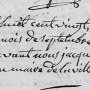 huit cent vingt
mois de septembre
avant nous jacques
maire de la vill